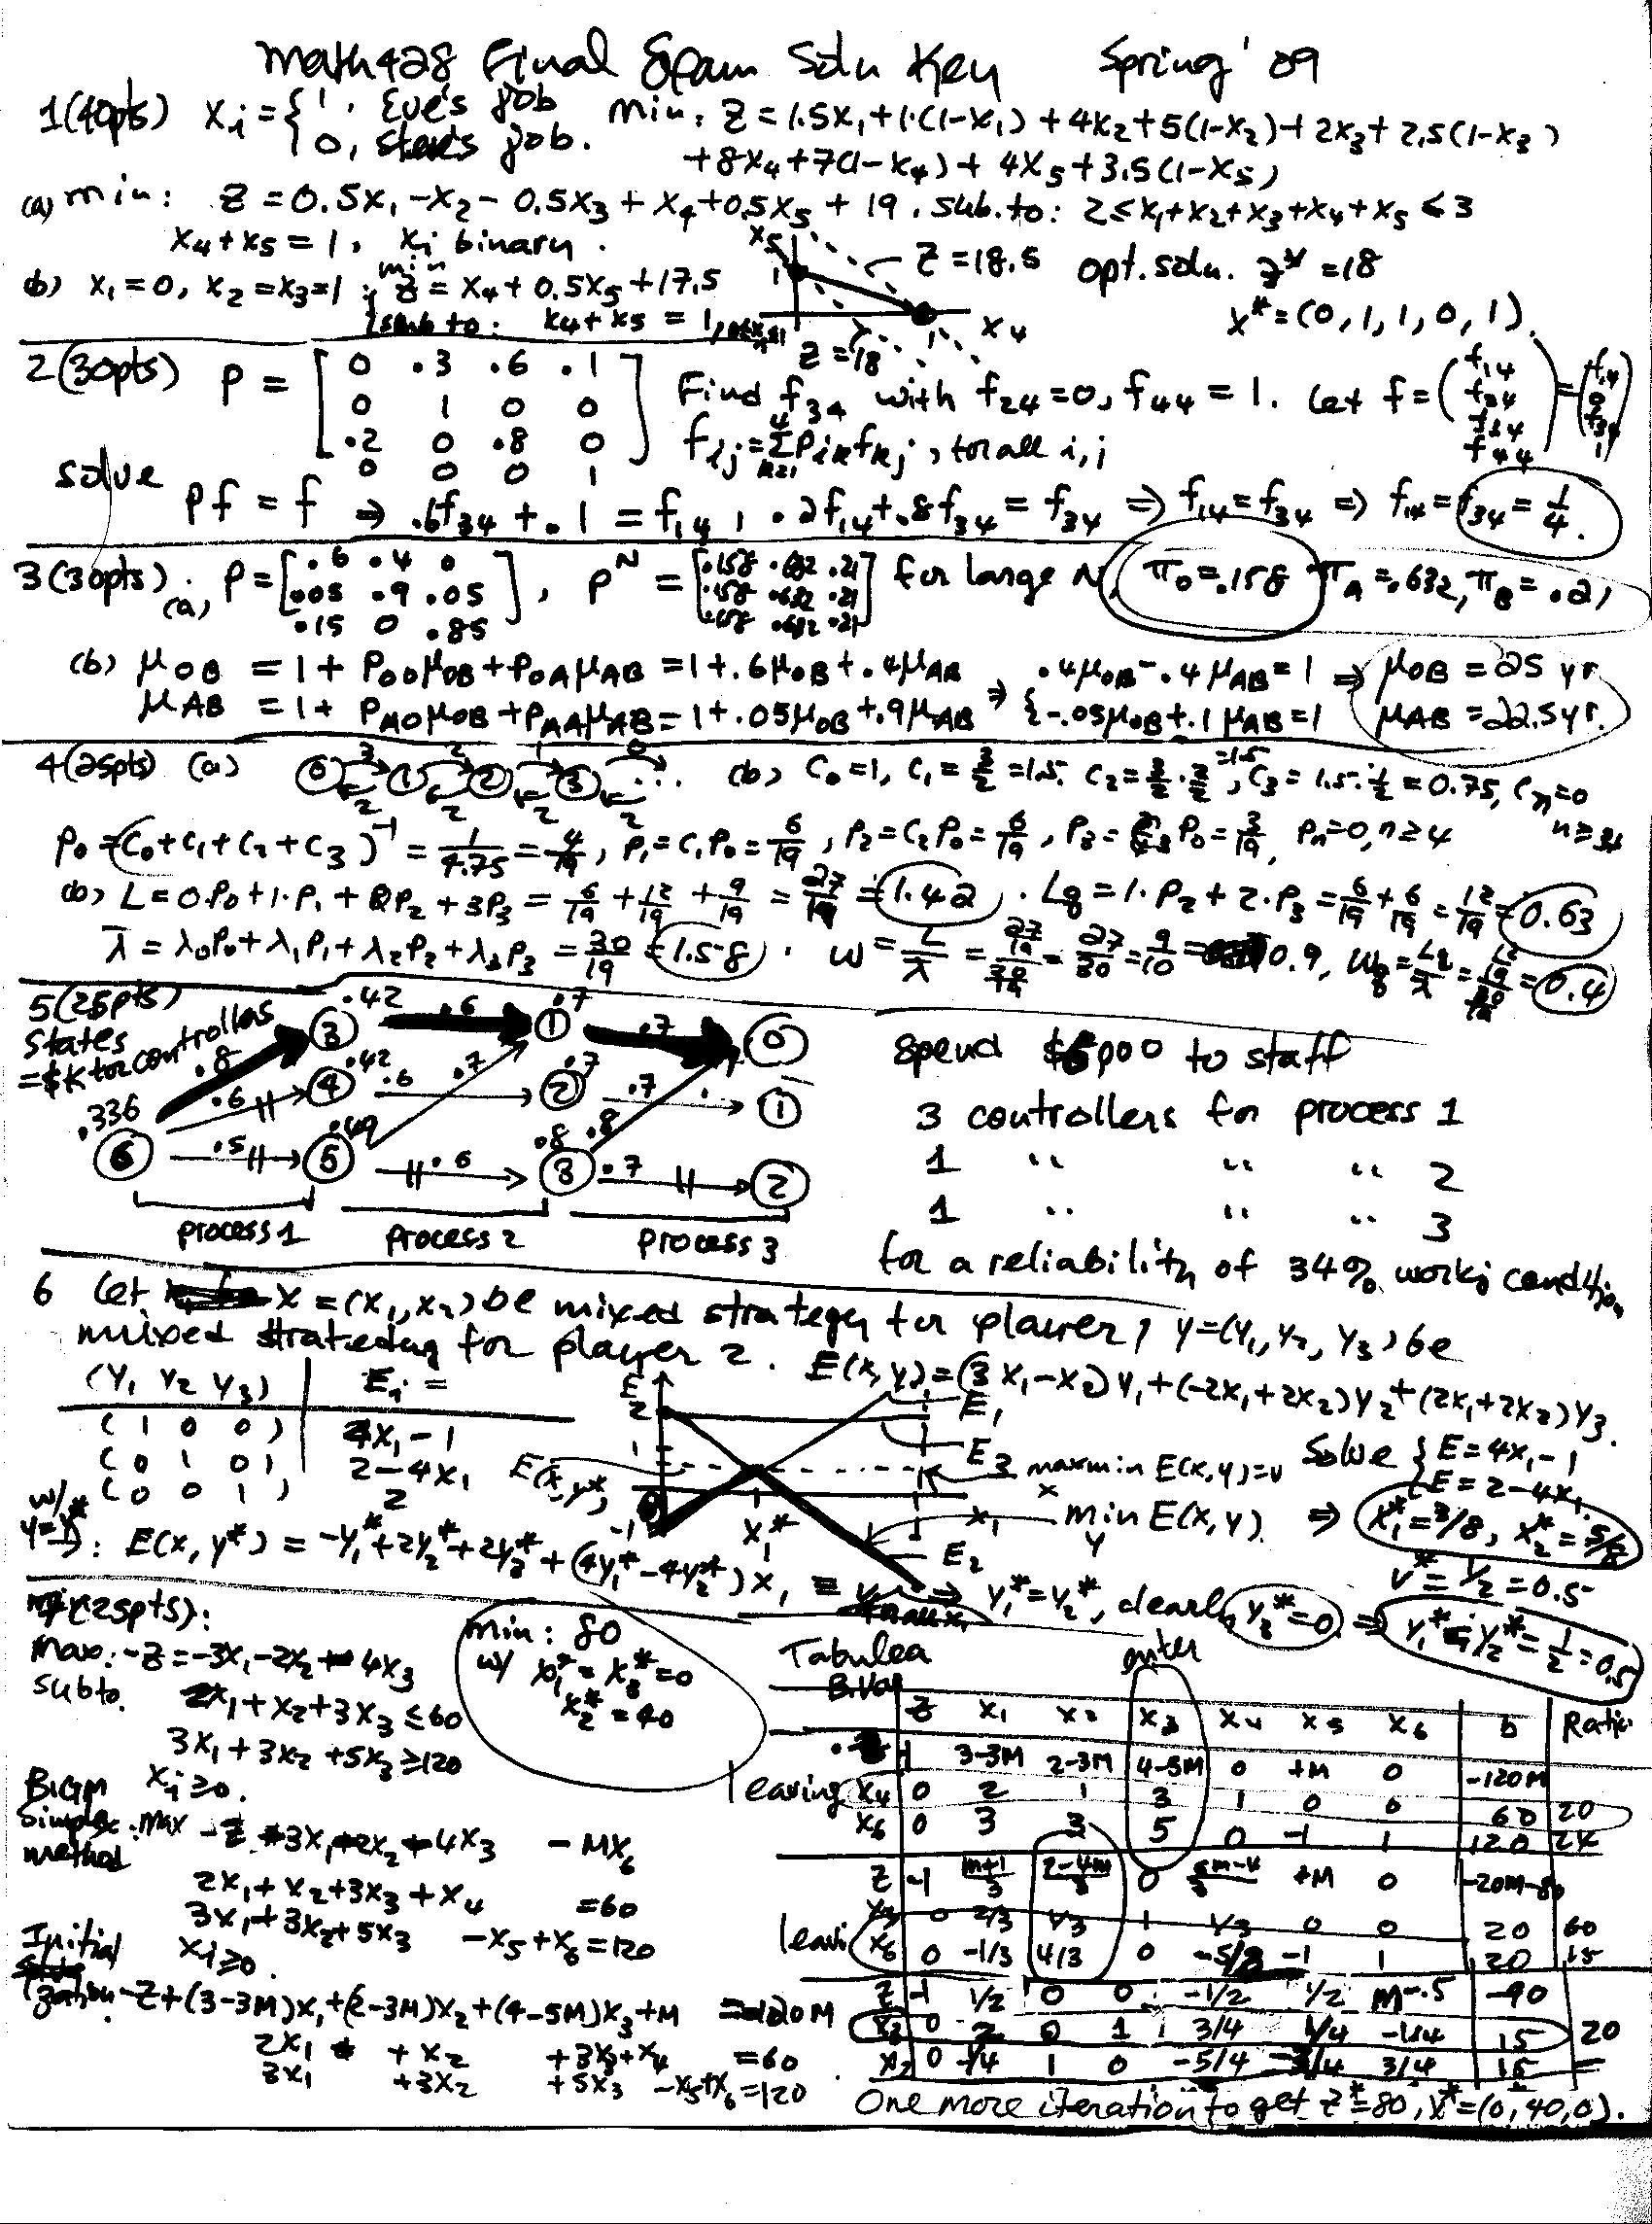 Math 428 Final Exam Soln Key Spring '09
1(40pts) xi = { 1, Eve's job Min: Z = 1.5x₁ + 1·(1-x₁) + 4x₂ + 5(1-x₂) + 2x₃ + 2.5(1-x₃)
0, Steve's job. + 8x₄ + 7(1-x₄) + 4x₅ + 3.5(1-x₅)
(a) min: Z = 0.5x₁ - x₂ - 0.5x₃ + x₄ + 0.5x₅ + 19, sub. to: 2 ≤ x₁+x₂+x₃+x₄+x₅ ≤ 3
x₄ + x₅ = 1, xi binary.
(b) x₁ = 0, x₂ = x₃ = 1, min Z = x₄ + 0.5x₅ + 17.5 x₅ 1 Z = 18.5 opt. soln. Z* = 18
sub to: x₄ + x₅ = 1, 1 x₄ x* = (0,1,1,0,1).
Z = 18
2(30pts) P = [ 0 .3 .6 .1
0 1 0 0
.2 0 .8 0
0 0 0 1 ]
Find f₃₄ with f₂₄ = 0, f₄₄ = 1. Let f = (f₁₄ f₂₄ f₃₄ f₄₄) = (f₁₄ 0 f₃₄ 1)
fij = Σ Pik fkj, for all i,j
solve Pf = f ⇒ .6f₃₄ + .1 = f₁₄, .2f₁₄ + .8f₃₄ = f₃₄ ⇒ f₁₄ = f₃₄ ⇒ f₁₄ = f₃₄ = 1/4.
3(30pts). (a) P = [ .6 .4 0
.05 .9 .05
.15 0 .85 ], P^N = [ .158 .632 .21
.158 .632 .21
.158 .632 .21 ] for large N, π₀ = .158 π_A = .632, π_B = .21
(b) μ_OB = 1 + P_OO μ_OB + P_OA μ_AB = 1 + .6μ_OB + .4μ_AB .4μ_OB - .4μ_AB = 1 ⇒ μ_OB = 25 yr.
μ_AB = 1 + P_AO μ_OB + P_AA μ_AB = 1 + .05μ_OB + .9μ_AB ⇒ { -.05μ_OB + .1μ_AB = 1 μ_AB = 22.5 yr.
4(25pts) (a) 0 1 2 3 ... 3 2 1 0 2 2 2 2 (b) C₀ = 1, C₁ = 3/2 = 1.5, C₂ = 3/2 · 2/2 = 1.5, C₃ = 1.5 · 1/2 = 0.75, Cn = 0
P₀ = (C₀ + C₁ + C₂ + C₃)⁻¹ = 1/4.75 = 4/19, P₁ = C₁P₀ = 6/19, P₂ = C₂P₀ = 6/19, P₃ = C₃P₀ = 3/19, Pn = 0, n ≥ 4
(b) L = 0·P₀ + 1·P₁ + 2P₂ + 3P₃ = 6/19 + 12/19 + 9/19 = 27/19 = 1.42. Lq = 1·P₂ + 2·P₃ = 6/19 + 6/19 = 12/19 = 0.63
λ̄ = λ₀P₀ + λ₁P₁ + λ₂P₂ + λ₃P₃ = 30/19 = 1.58. W = L/λ̄ = 27/19 / 30/19 = 27/30 = 9/10 = 0.9, Wq = Lq/λ̄ = 0.4
5(25pts)
States
= $K for controllers
.336 6 .8 .6 .5 3 .42 4 .42 5 .49 .6 .6 .7 .6 1 .7 2 .7 3 .8 .7 .7 .8 .7 0 1 2
process 1 process 2 process 3
Spend $5000 to staff
3 controllers for process 1
1 " " " 2
1 " " " 3
for a reliability of 34% working condition
6 Let x = (x₁, x₂) be mixed strategy for player 1 y = (y₁, y₂, y₃) be
mixed strategy for player 2. E(x,y) = (3x₁ - x₂)y₁ + (-2x₁ + 2x₂)y₂ + (2x₁ + 2x₂)y₃.
(y₁ y₂ y₃) Ei =
(1 0 0) 4x₁ - 1
(0 1 0) 2 - 4x₁
(0 0 1) 2
E 2 1 0 -1 E(x*,y*) x₁* x₁ E₁ E₃ E₂ maxmin E(x,y) = v min E(x,y)
Solve { E = 4x₁ - 1
E = 2 - 4x₁
⇒ x₁* = 3/8, x₂* = 5/8
v* = 1/2 = 0.5
w/ y = y*: E(x, y*) = -y₁* + 2y₂* + 2y₃* + (4y₁* - 4y₂*)x₁ ≡ v ⇒ y₁* = y₂*, clearly y₃* = 0. ⇒ y₁* = y₂* = 1/2 = 0.5
7(25pts):
Max: -Z = -3x₁ - 2x₂ - 4x₃
Sub to. 2x₁ + x₂ + 3x₃ ≤ 60
3x₁ + 3x₂ + 5x₃ ≥ 120
xi ≥ 0.
min: 80
w/ x₁* = x₃* = 0
x₂* = 40
Big M
Simplex method: Max -Z + 3x₁ + 2x₂ + 4x₃ - Mx₆
2x₁ + x₂ + 3x₃ + x₄ = 60
3x₁ + 3x₂ + 5x₃ - x₅ + x₆ = 120
xi ≥ 0.
Initialization -Z + (3-3M)x₁ + (2-3M)x₂ + (4-5M)x₃ + M = -120M
2x₁ + x₂ + 3x₃ + x₄ = 60
3x₁ + 3x₂ + 5x₃ - x₅ + x₆ = 120
Tabulea enter
B.Var Z x₁ x₂ x₃ x₄ x₅ x₆ b Ratio
-1 3-3M 2-3M 4-5M 0 +M 0 -120M
leaving x₄ 0 2 1 3 1 0 0 60 20
x₆ 0 3 3 5 0 -1 1 120 24
Z -1 M+1/3 2-4M/3 0 5M-4/3 +M 0 -20M-80
x₃ 0 2/3 1/3 1 1/3 0 0 20 60
leavi x₆ 0 -1/3 4/3 0 -5/3 -1 1 20 15
Z -1 1/2 0 0 -1/2 1/2 M-.5 -90
x₃ 0 0 1 3/4 1/4 -1/4 15 20
x₂ 0 -1/4 1 0 -5/4 -3/4 3/4 15 —
One more iteration to get Z* = 80, x* = (0, 40, 0).